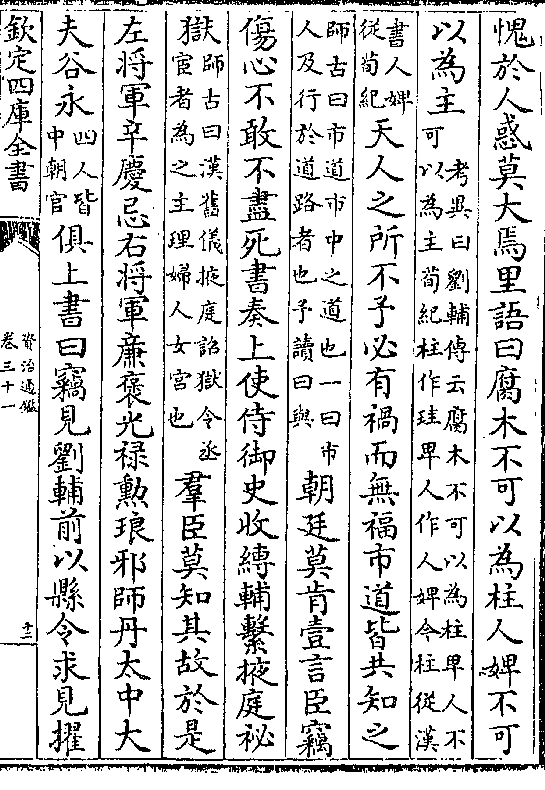 愧於人惑莫大焉里語曰腐木不可以為柱人婢不可
以為主
考異曰劉輔傳云腐木不可以為柱卑人不
可以為主荀紀柱作珪卑人作人婢今柱從漢
書人婢
從荀紀
天人之所不予必有禍而無福市道皆共知之
師古曰市道市中之道也一曰市
人及行於道路者也予讀曰與
朝廷莫肯壹言臣竊
傷心不敢不盡死書奏上使侍御史收縛輔繫掖庭祕
獄
師古曰漢舊儀掖庭詔獄令丞
宦者為之主理婦人女宮也
羣臣莫知其故於是
左將軍辛慶忌右將軍廉褒光禄勲琅邪師丹太中大
夫谷永
四人皆
中朝官
俱上書曰竊見劉輔前以縣令求見擢
欽定四庫全書
資治通鑑
卷三十一
十三